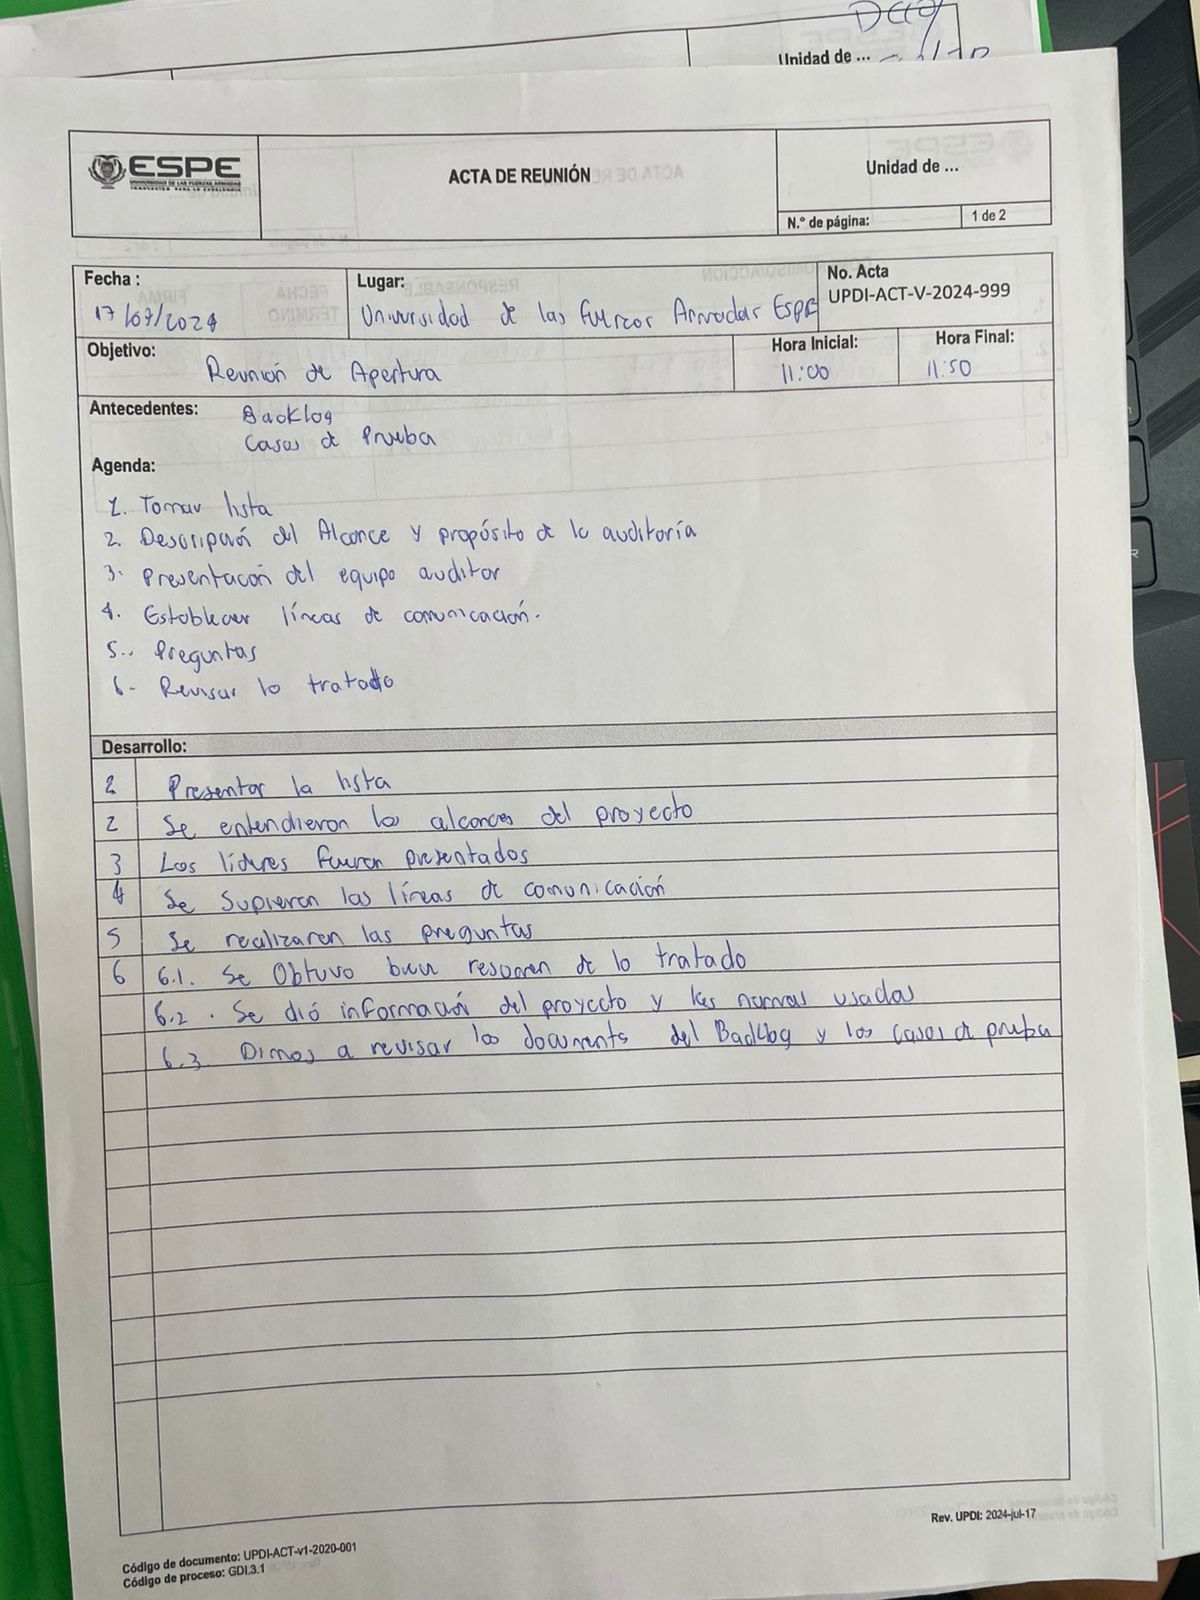 Unidad de ...
ESPE
UNIVERSIDAD DE LAS FUERZAS ARMADAS
INNOVACIÓN PARA LA EXCELENCIA
ACTA DE REUNIÓN
Unidad de ...
N.° de página:
1 de 2
Fecha :
17/07/2024
Lugar:
Universidad de las Fuerzas Armadas Espe
No. Acta
UPDI-ACT-V-2024-999
Objetivo:
Reunión de Apertura
Hora Inicial:
11:00
Hora Final:
11:50
Antecedentes:
Backlog
Casos de Prueba
Agenda:
1. Tomar lista
2. Descripción del Alcance y propósito de la auditoría
3. Presentación del equipo auditor
4. Establecer líneas de comunicación.
5.. Preguntas
6- Revisar lo tratado
Desarrollo:
Presentar la lista
2 Se entendieron los alcances del proyecto
3 Los líderes fueron presentados
4 Se supieron las líneas de comunicación
5 Se realizaron las preguntas
6 6.1. Se Obtuvo buen resumen de lo tratado
6.2. Se dió información del proyecto y las normas usadas
6.3. Dimos a revisar los documents del Backlog y los casos de prueba
Rev. UPDI: 2024-jul-17
Código de documento: UPDI-ACT-v1-2020-001
Código de proceso: GDI.3.1